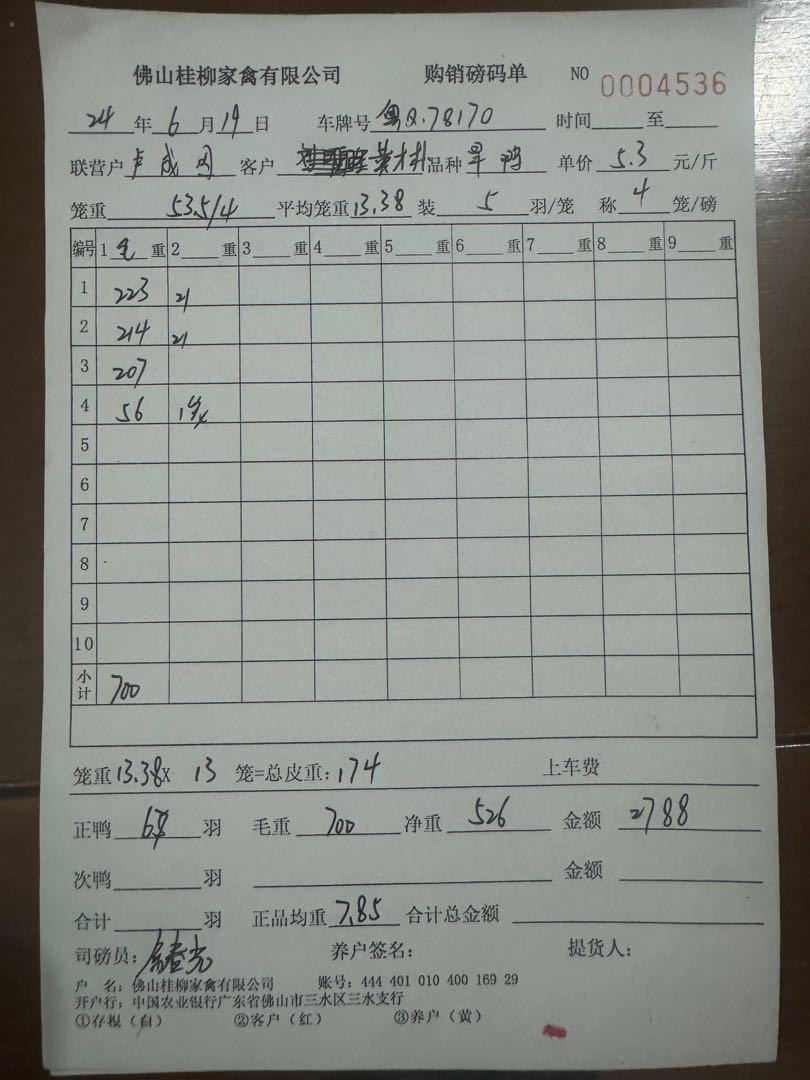 佛山桂柳家禽有限公司 购销磅码单 NO 0004536
24 年 6 月 19 日 车牌号 粤Q.78170 时间 至
联营户 卢成 客户 黄木 品种 旱鸭 单价 5.3 元/斤
笼重 53.5/4 平均笼重 13.38 装 5 羽/笼 称 4 笼/磅
编号 1 毛 重 2 重 3 重 4 重 5 重 6 重 7 重 8 重 9 重
1 223 21
2 214 21
3 207
4 56
5
6
7
8
9
10
小计 700
笼重 13.38X 13 笼=总皮重: 174 上车费
正鸭 羽 毛重 700 净重 526 金额 2788
次鸭 羽 金额
合计 羽 正品均重 7.85 合计总金额
司磅员: 养户签名: 提货人:
户 名: 佛山桂柳家禽有限公司 账号: 444 401 010 400 169 29
开户行: 中国农业银行广东省佛山市三水区三水支行
①存根(白) ②客户(红) ③养户(黄)